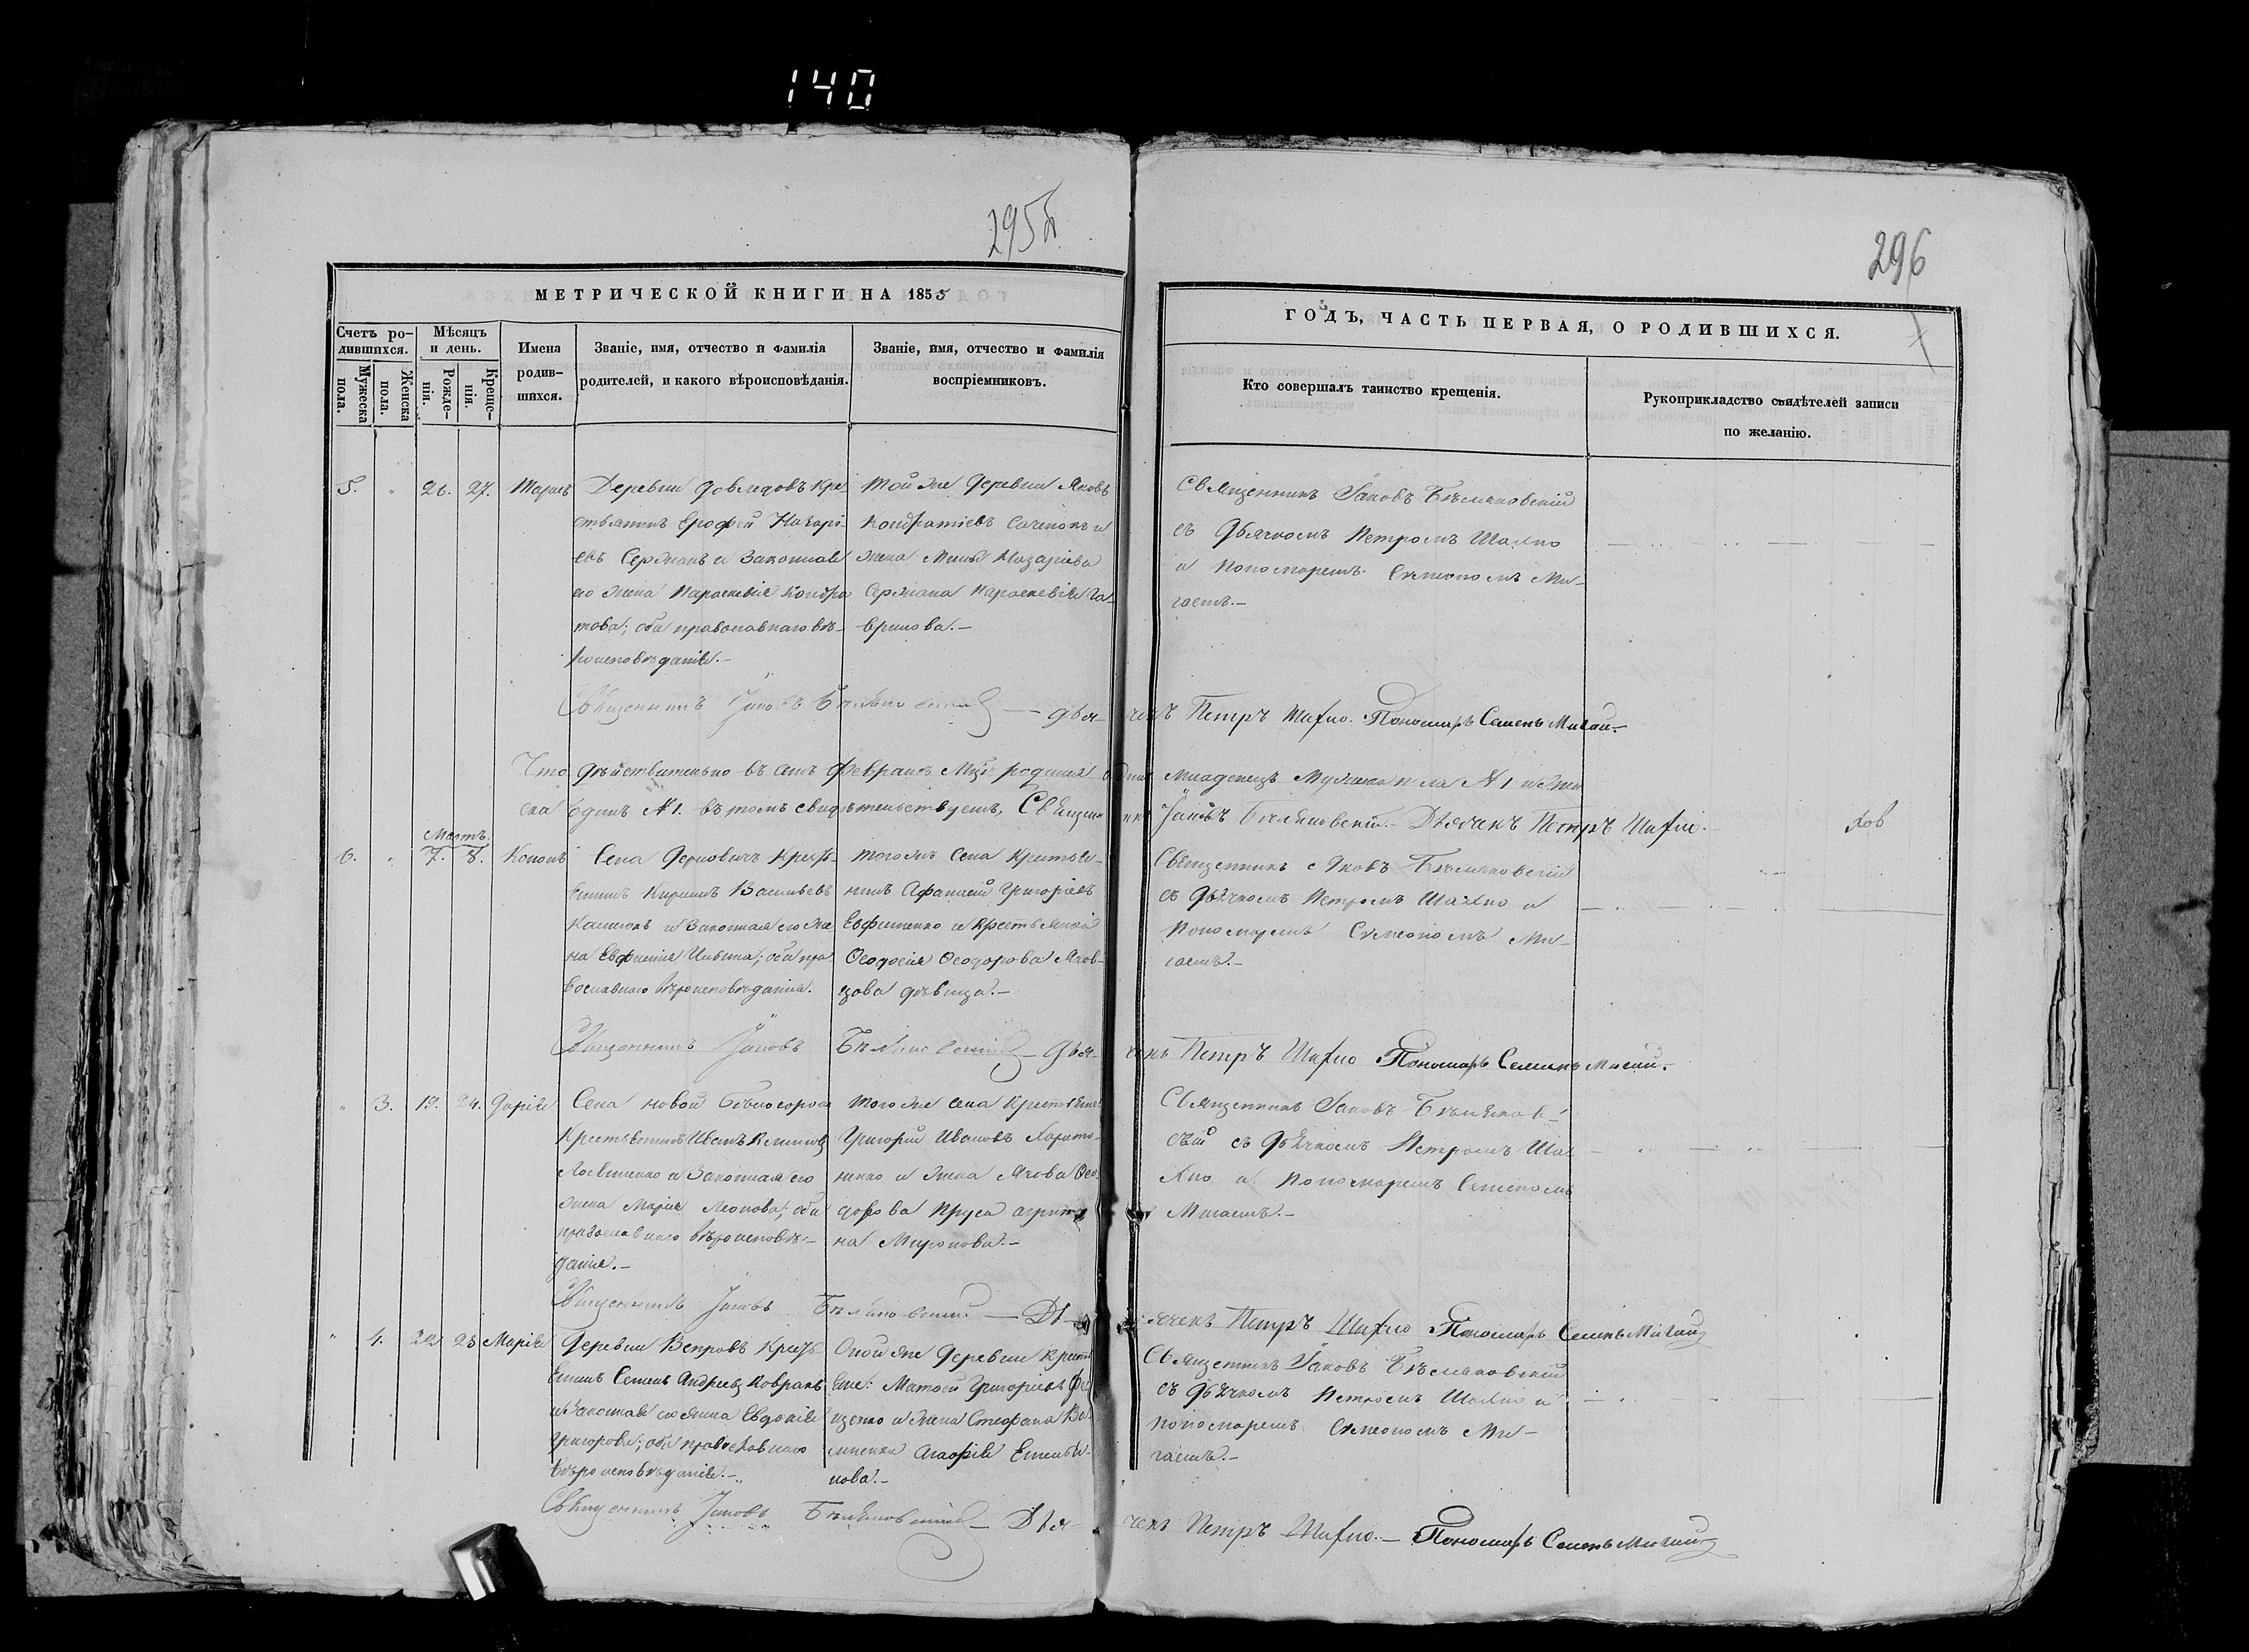 140
295
296
МЕТРИЧЕСКОЙ КНИГИ НА 1855
ГОДЪ, ЧАСТЬ ПЕРВАЯ, О РОДИВШИХСЯ.
Счетъ ро-
дившихся.
Мужеска пола.
Женска пола.
Мѣсяцъ
и день.
Рожде-
нія.
Креще-
нія.
Имена
родив-
шихся.
Званіе, имя, отчество и фамилія
родителей, и какого вѣроисповѣданія.
Званіе, имя, отчество и фамилія
воспріемниковъ.
Кто совершалъ таинство крещенія.
Рукоприкладство свидѣтелей записи
по желанію.
5. 26. 27. Тарасъ
Деревни Довледовъ Кре-
стьянинъ Ерофей Назарі-
евъ Сержанъ и Законная
его жена Параскевія Кондра
това; оба православнаго вѣ-
роисповѣданія.-
Той же Деревни Яковъ
Кондратіевъ и
жена Мины Назаріева
Сержана Параскевія Га-
врилова.-
Священникъ Іаковъ
съ Дьячкомъ Петромъ Шахно
и Пономаремъ Симеономъ Ми-
гаемъ.-
Священникъ Іаковъ — дья-
чекъ Петръ Шахно. Пономарь Семенъ Мигай.-
Что дѣйствительно въ семъ Февралѣ Мцѣ родился одинъ младенецъ Мужеска пола №1 и Жен
ска Одинъ №1. въ томъ свидѣтельствуемъ, Священникъ Іаковъ Дьячекъ Петръ Шахно.-
Мартъ.
6. 7. 8. Кононъ
Села Кресть-
янинъ Кириллъ Васильевъ
и Законная его же
на Евфимія Ильина; оба пра
вославнаго вѣроисповѣданія.
того же Села Крестья-
нинъ Афанасій Григоріевъ
Евфименко и Крестьянка
Ѳеодосія Ѳеодорова Яков-
цова дѣвица.-
Священникъ Іаковъ
съ Дьячкомъ Петромъ Шахно и
Пономаремъ Симеономъ Ми-
гаемъ.-
Священникъ Іаковъ — дья-
чекъ Петръ Шахно Пономарь Семенъ Мигай.-
3. 19. 24. Дарія
Села новой
Крестьянинъ Иванъ
и Законная его
жена Марія Леонова; оба
православнаго вѣроисповѣ-
данія.-
того же села Крестьяне
Григорій Ивановъ Харито-
ненко и жена Якова Ѳео-
дорова Пруса агрипи
на Миронова.-
Священникъ Іаковъ
скій съ Дьячкомъ Петромъ Ша
хно и Пономаремъ Симеономъ
Мигаемъ.-
Священникъ Іаковъ — Дь-
ячекъ Петръ Шахно Пономарь Семенъ Мигай
4. 22 23 Марія
Деревни Вепровъ Кресть
янинъ Семенъ Андреевъ Ковранъ
и Законная его жена Евдокія
Григорова; оба православнаго
вѣроисповѣданія.-
Оной же Деревни Кресть
яне: Матѳей Григоріевъ
щенко и жена Стефана
Агафія Емельа-
нова.-
Священникъ Іаковъ
съ Дьячкомъ Петромъ Шахно и
пономаремъ Симеономъ Ми-
гаемъ.-
Священникъ Іаковъ — Дья-
чекъ Петръ Шахно.— Пономарь Семенъ Мигай